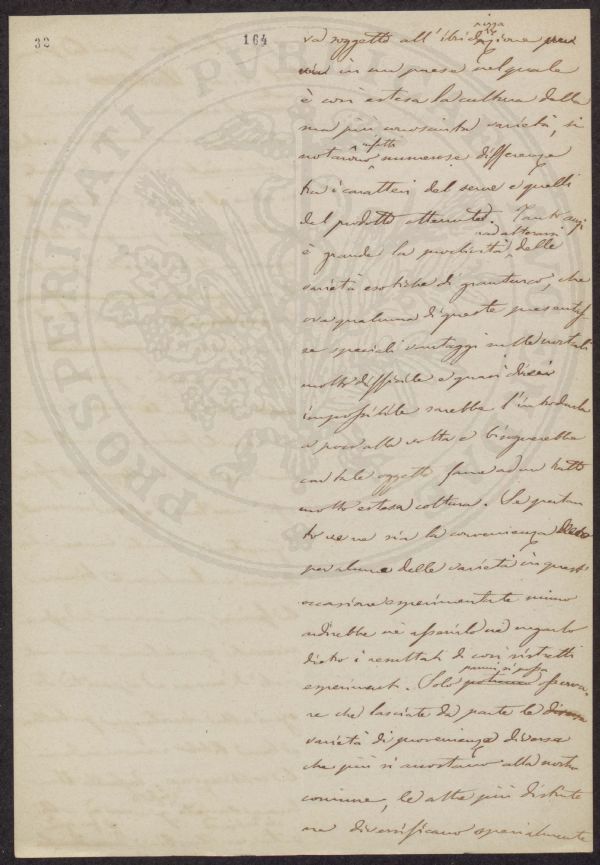 32 164
va soggetto all'ibridazione
in un paese nel quale
è così estesa la cultura della
ma più conosciuta varietà, si
notarono infatti numerose differenze
tra i caratteri del seme e quelli
del prodotto ottenuto. Tant'anzi
è grande la proclività ad alterarsi delle
varietà esotiche di granturco, che
ora qualcuna di queste presentas
se speciali vantaggi sulle nostrali
molto difficile e quasi direi
impossibile sarebbe l'introdurla
a poco alla volta e bisognerebbe
con tale oggetto farne ad un tratto
molto estesa coltura. Se pertan
to ve ne sia la convenienza
per alcune delle varietà in quest'
occasione sperimentate niuno
ardirebbe nè asserirlo nè negarlo
dietro i resultati di così ristretti
esperimenti. Solo parmi si possa osserva
re che lasciate da parte le
varietà di provenienza diversa
che più si accostano alla nostra
comune, le altre più distinte
ne diversificano specialmente
PROSPERITATI PVBLICAE